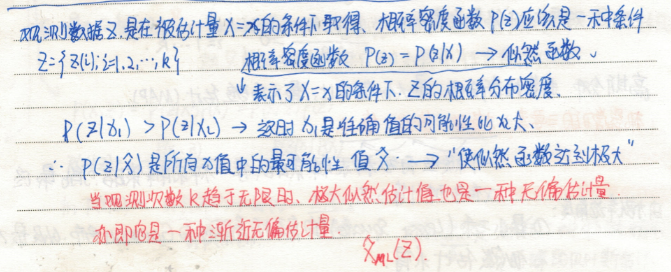 观测数据Z是在被估计量X=x的条件下取得、概率密度函数P(z)应该是一种条件
Z={z(i);i=1,2,…,k} 概率密度函数 P(z)=P(z|x) → 似然函数、
↓表示了X=x的条件下、Z的概率分布密度、
P(z|x₁) > P(z|x₂) → 这时 x₁是准确值的可能性比x₂大、
∴ P(z|x̂)是所有x值中的最可能性值x̂. → "使似然函数达到极大"
当观测次数k趋于无限时、极大似然估计值也是一种无偏估计量.
亦即它是一种渐近无偏估计量.
x̂ML(Z).